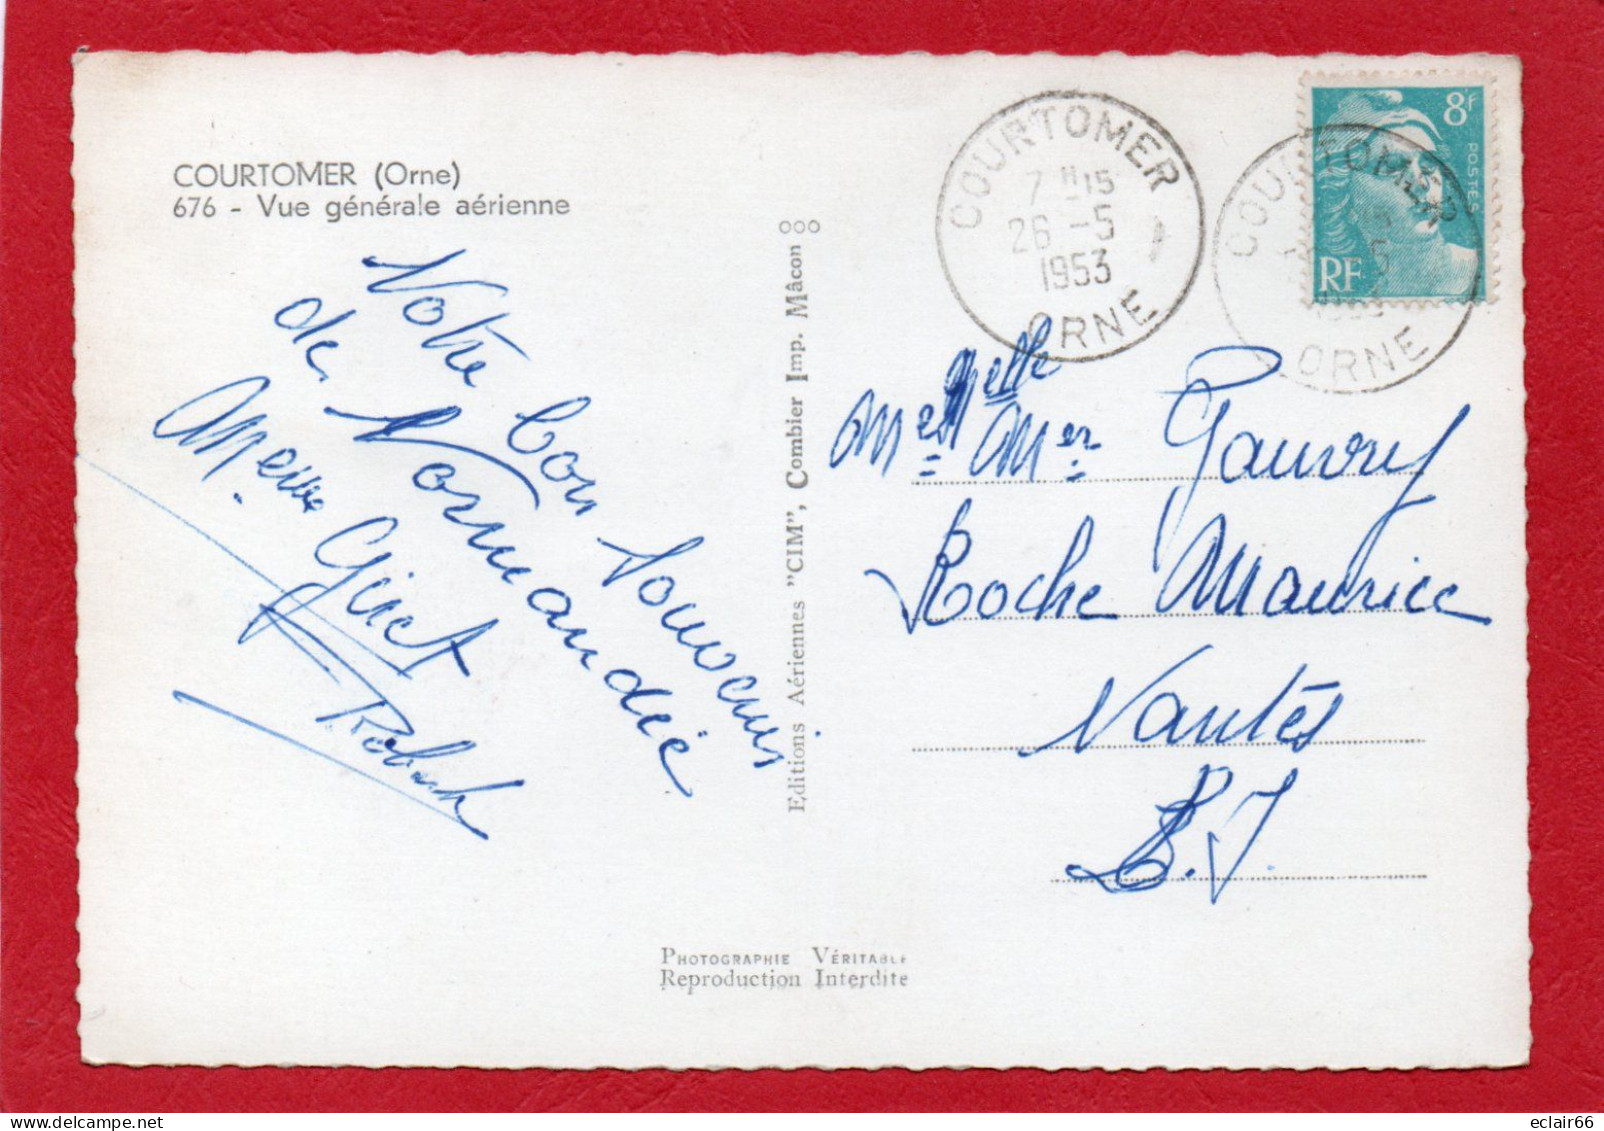 COURTOMER (Orne)
676 - Vue générale aérienne
Votre bon souvenir
de Normandie
Robert
Editions Aériennes "CIM", Combier Imp. Mâcon
PHOTOGRAPHIE VÉRITABLE
Reproduction Interdite
COURTOMER
7 H 15
26 -5
1953
ORNE
8F
POSTES
RF
COURTOMER
ORNE
Melle
Mer Gauvry
Roche Maurice
Nantes
L.I.
eclair66